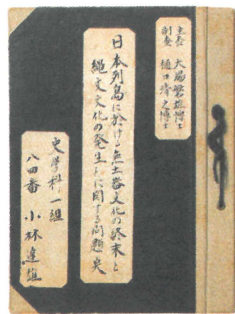 主査 大場磐雄博士
副査 樋口清之博士
日本列島に於ける無土器文化の終末と
縄文文化の発生とに関する問題点
史学科 一組
八四番 小林達雄